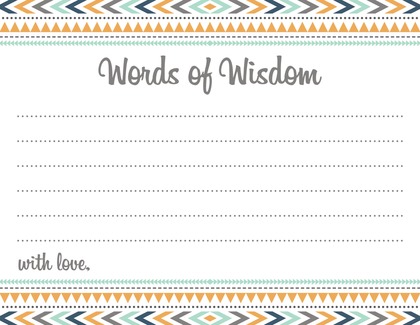 Words of Wisdom
with love,